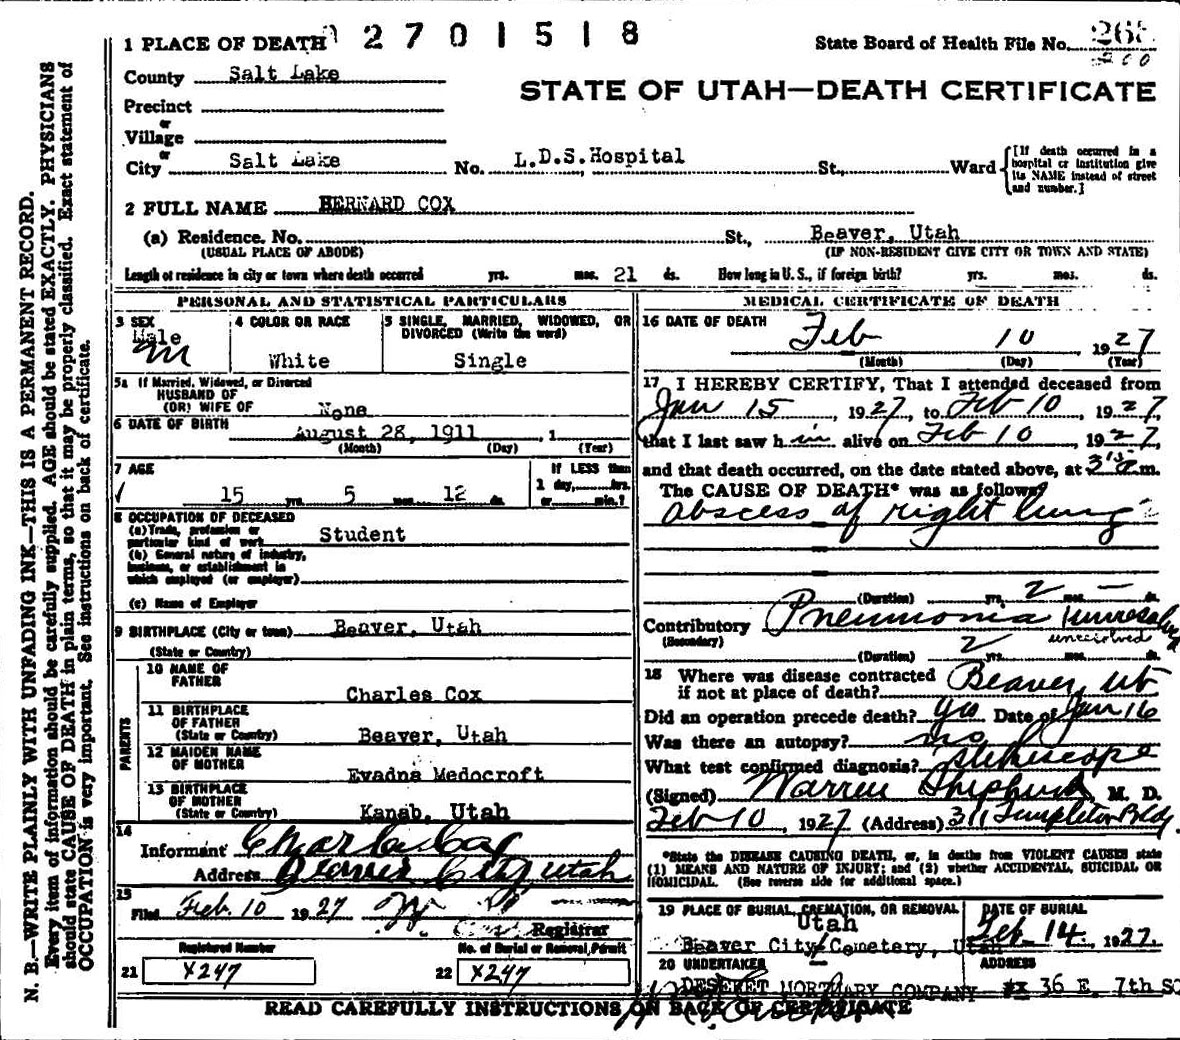 2701518
1 PLACE OF DEATH
State Board of Health File No. 268
200
County Salt Lake
STATE OF UTAH—DEATH CERTIFICATE
Precinct
or
Village
or
City Salt Lake No. L.D.S. Hospital St., Ward
[If death occurred in a hospital or institution give its NAME instead of street and number.]
2 FULL NAME BERNARD COX
(a) Residence. No. St., Beaver, Utah
(USUAL PLACE OF ABODE) (IF NON-RESIDENT GIVE CITY OR TOWN AND STATE)
Length of residence in city or town where death occurred yrs. mos. 21 ds. How long in U. S., if foreign birth? yrs. mos. ds.
PERSONAL AND STATISTICAL PARTICULARS
3 SEX
Male
M
4 COLOR OR RACE
White
5 SINGLE, MARRIED, WIDOWED, OR
DIVORCED (Write the word)
Single
5a If Married, Widowed, or Divorced
HUSBAND OF
(OR) WIFE OF None
6 DATE OF BIRTH August 28, 1911, 1
(Month) (Day) (Year)
7 AGE
15 yrs. 5 mos. 12 ds.
If LESS than
1 day, hrs.
or min.?
8 OCCUPATION OF DECEASED
(a) Trade, profession or
particular kind of work Student
(b) General nature of industry,
business, or establishment in
which employed (or employer)
(c) Name of Employer
9 BIRTHPLACE (City or town) Beaver, Utah
(State or Country)
PARENTS
10 NAME OF
FATHER
Charles Cox
11 BIRTHPLACE
OF FATHER
(State or Country) Beaver, Utah
12 MAIDEN NAME
OF MOTHER
Evadna Medocroft
13 BIRTHPLACE
OF MOTHER
(State or Country) Kanab, Utah
14
Informant Charles Cox
Address Beaver City, Utah
15
Filed Feb. 10 1927
Registrar
Registered Number
No. of Burial or Removal Permit
21 X247 22 X247
MEDICAL CERTIFICATE OF DEATH
16 DATE OF DEATH
Feb 10 1927
(Month) (Day) (Year)
17 I HEREBY CERTIFY, That I attended deceased from
Jan 15, 1927, to Feb 10, 1927,
that I last saw him alive on Feb 10, 1927,
and that death occurred, on the date stated above, at 3 15 a m.
The CAUSE OF DEATH* was as follows
abscess of right lung
(Duration) yrs. 2 mos. ds.
Contributory Pneumonia unresolved
(Secondary) unresolved
(Duration) 2 yrs. mos. ds.
18 Where was disease contracted
if not at place of death? Beaver, Ut
Did an operation precede death? yes Date of Jan 16
Was there an autopsy? no
What test confirmed diagnosis? stethescope
(Signed) Warren Shepherd, M. D.
Feb 10, 1927 (Address) 311 Templeton Bldg.
*State the DISEASE CAUSING DEATH, or, in deaths from VIOLENT CAUSES state
(1) MEANS AND NATURE OF INJURY; and (2) whether ACCIDENTAL, SUICIDAL OR
HOMICIDAL. (See reverse side for additional space.)
19 PLACE OF BURIAL, CREMATION, OR REMOVAL
Utah
Beaver City Cemetery, Utah
DATE OF BURIAL
Feb. 14, 1927.
20 UNDERTAKER
DESERET MORTUARY COMPANY
ADDRESS
36 E. 7th SO
READ CAREFULLY INSTRUCTIONS ON BACK OF CERTIFICATE
N. B.—WRITE PLAINLY WITH UNFADING INK—THIS IS A PERMANENT RECORD.
Every item of information should be carefully supplied. AGE should be stated EXACTLY. PHYSICIANS
should state CAUSE OF DEATH in plain terms, so that it may be properly classified. Exact statement of
OCCUPATION is very important. See instructions on back of certificate.